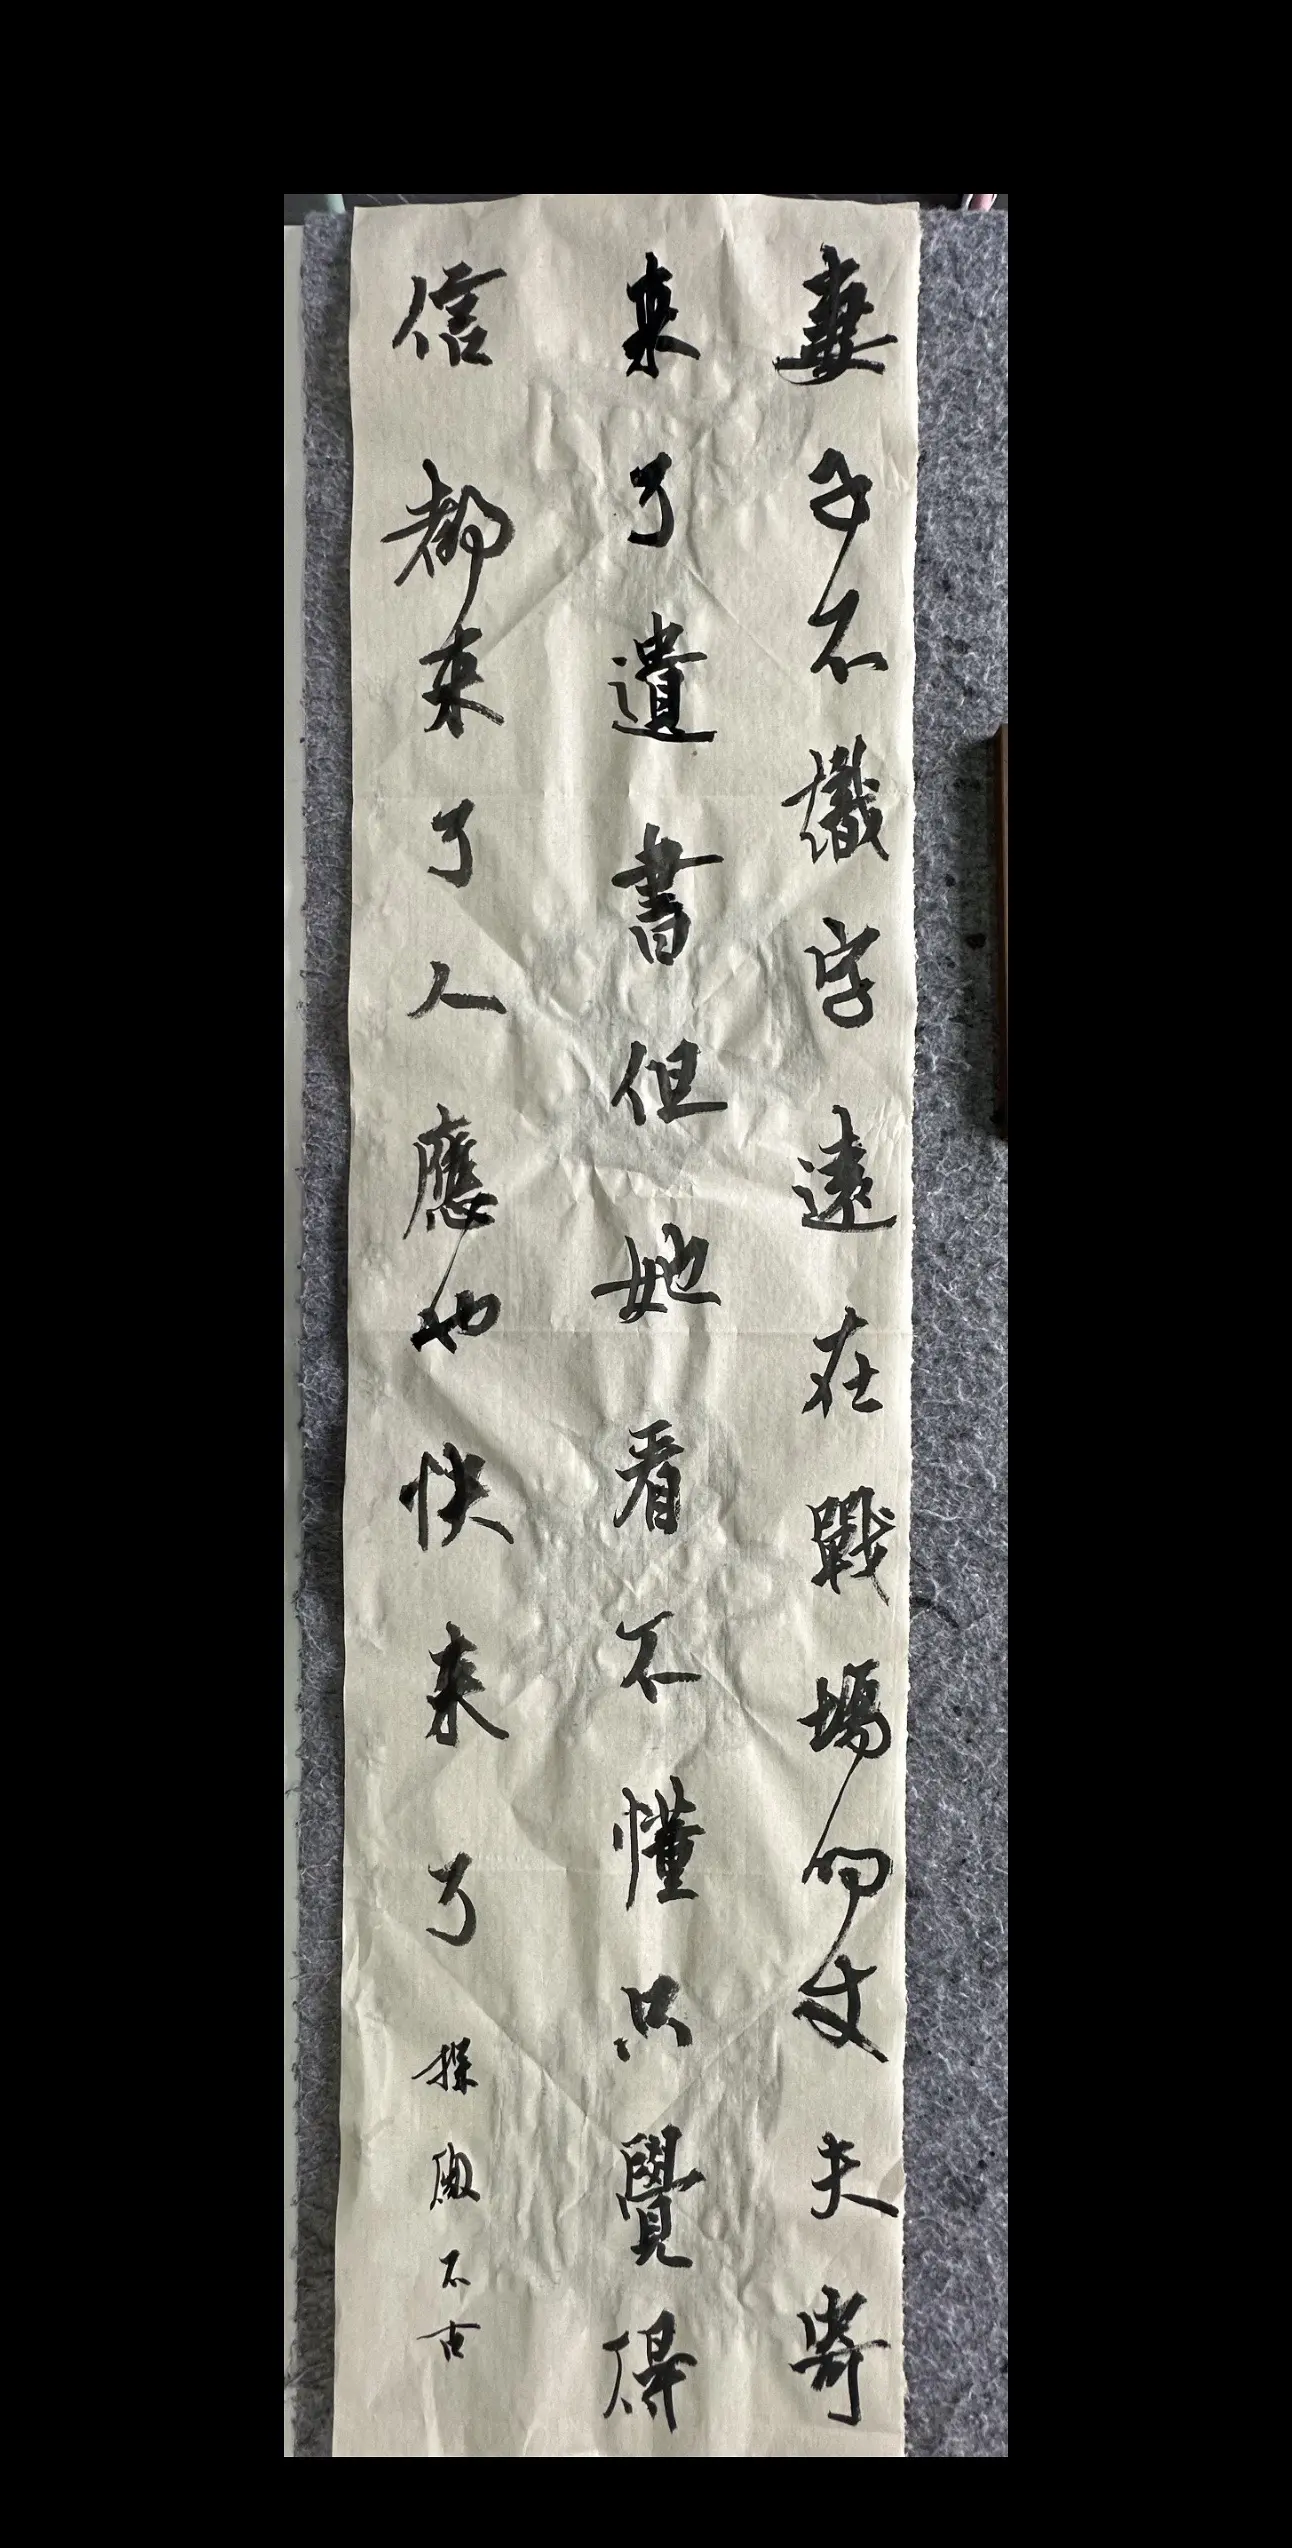 妻子不識字遠在戰場的丈夫寄
來了遺書但她看不懂只覺得
信都來了人應也快來了
不古